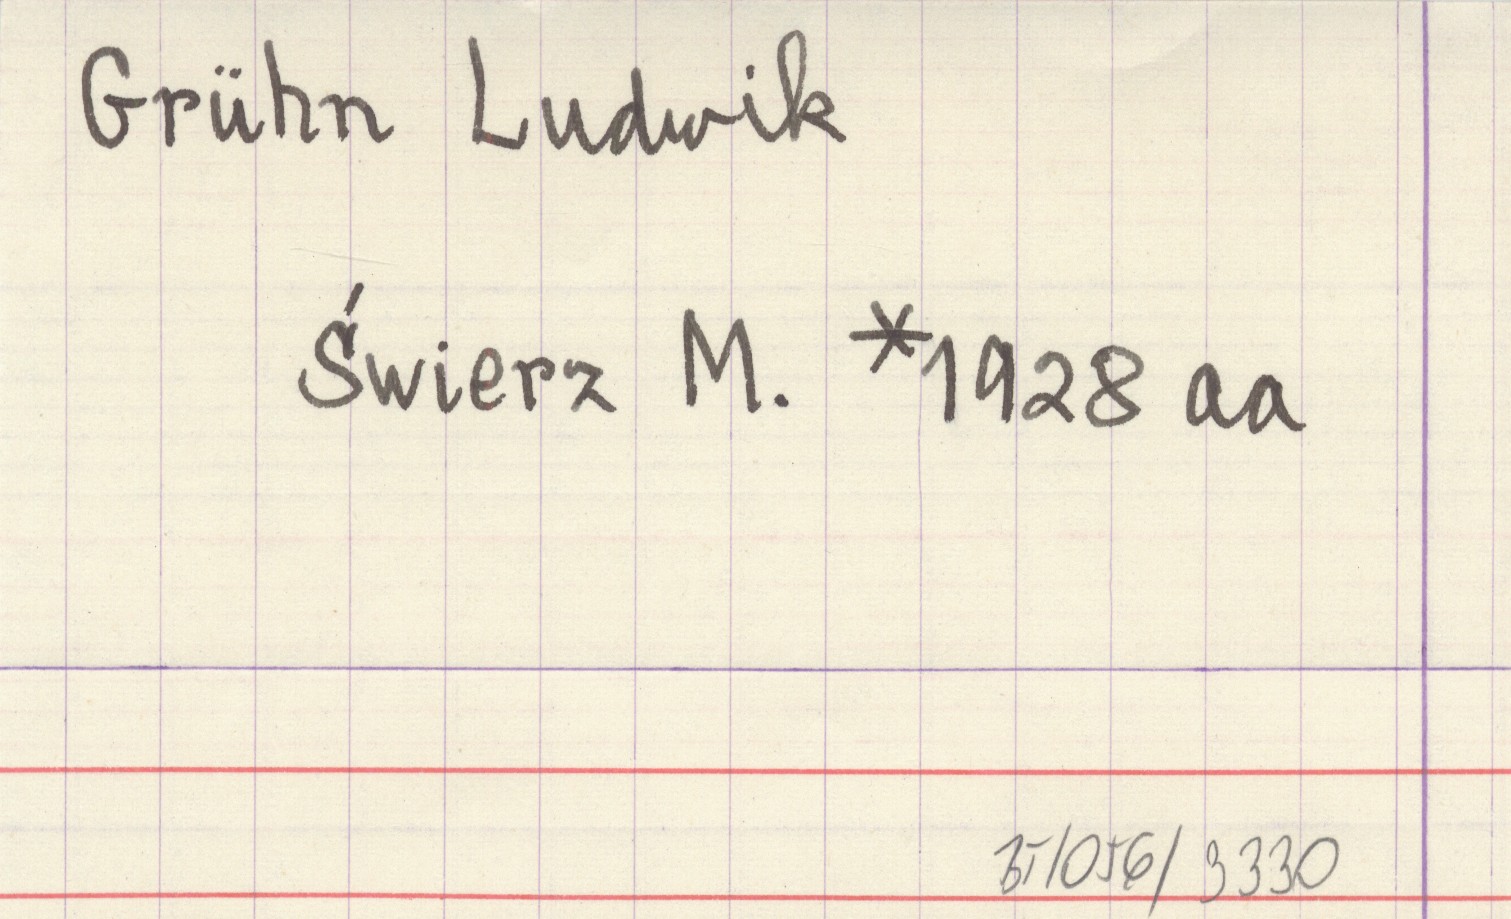 Grühn Ludwik
Świerz M. *1928 aa
BI/056/3330